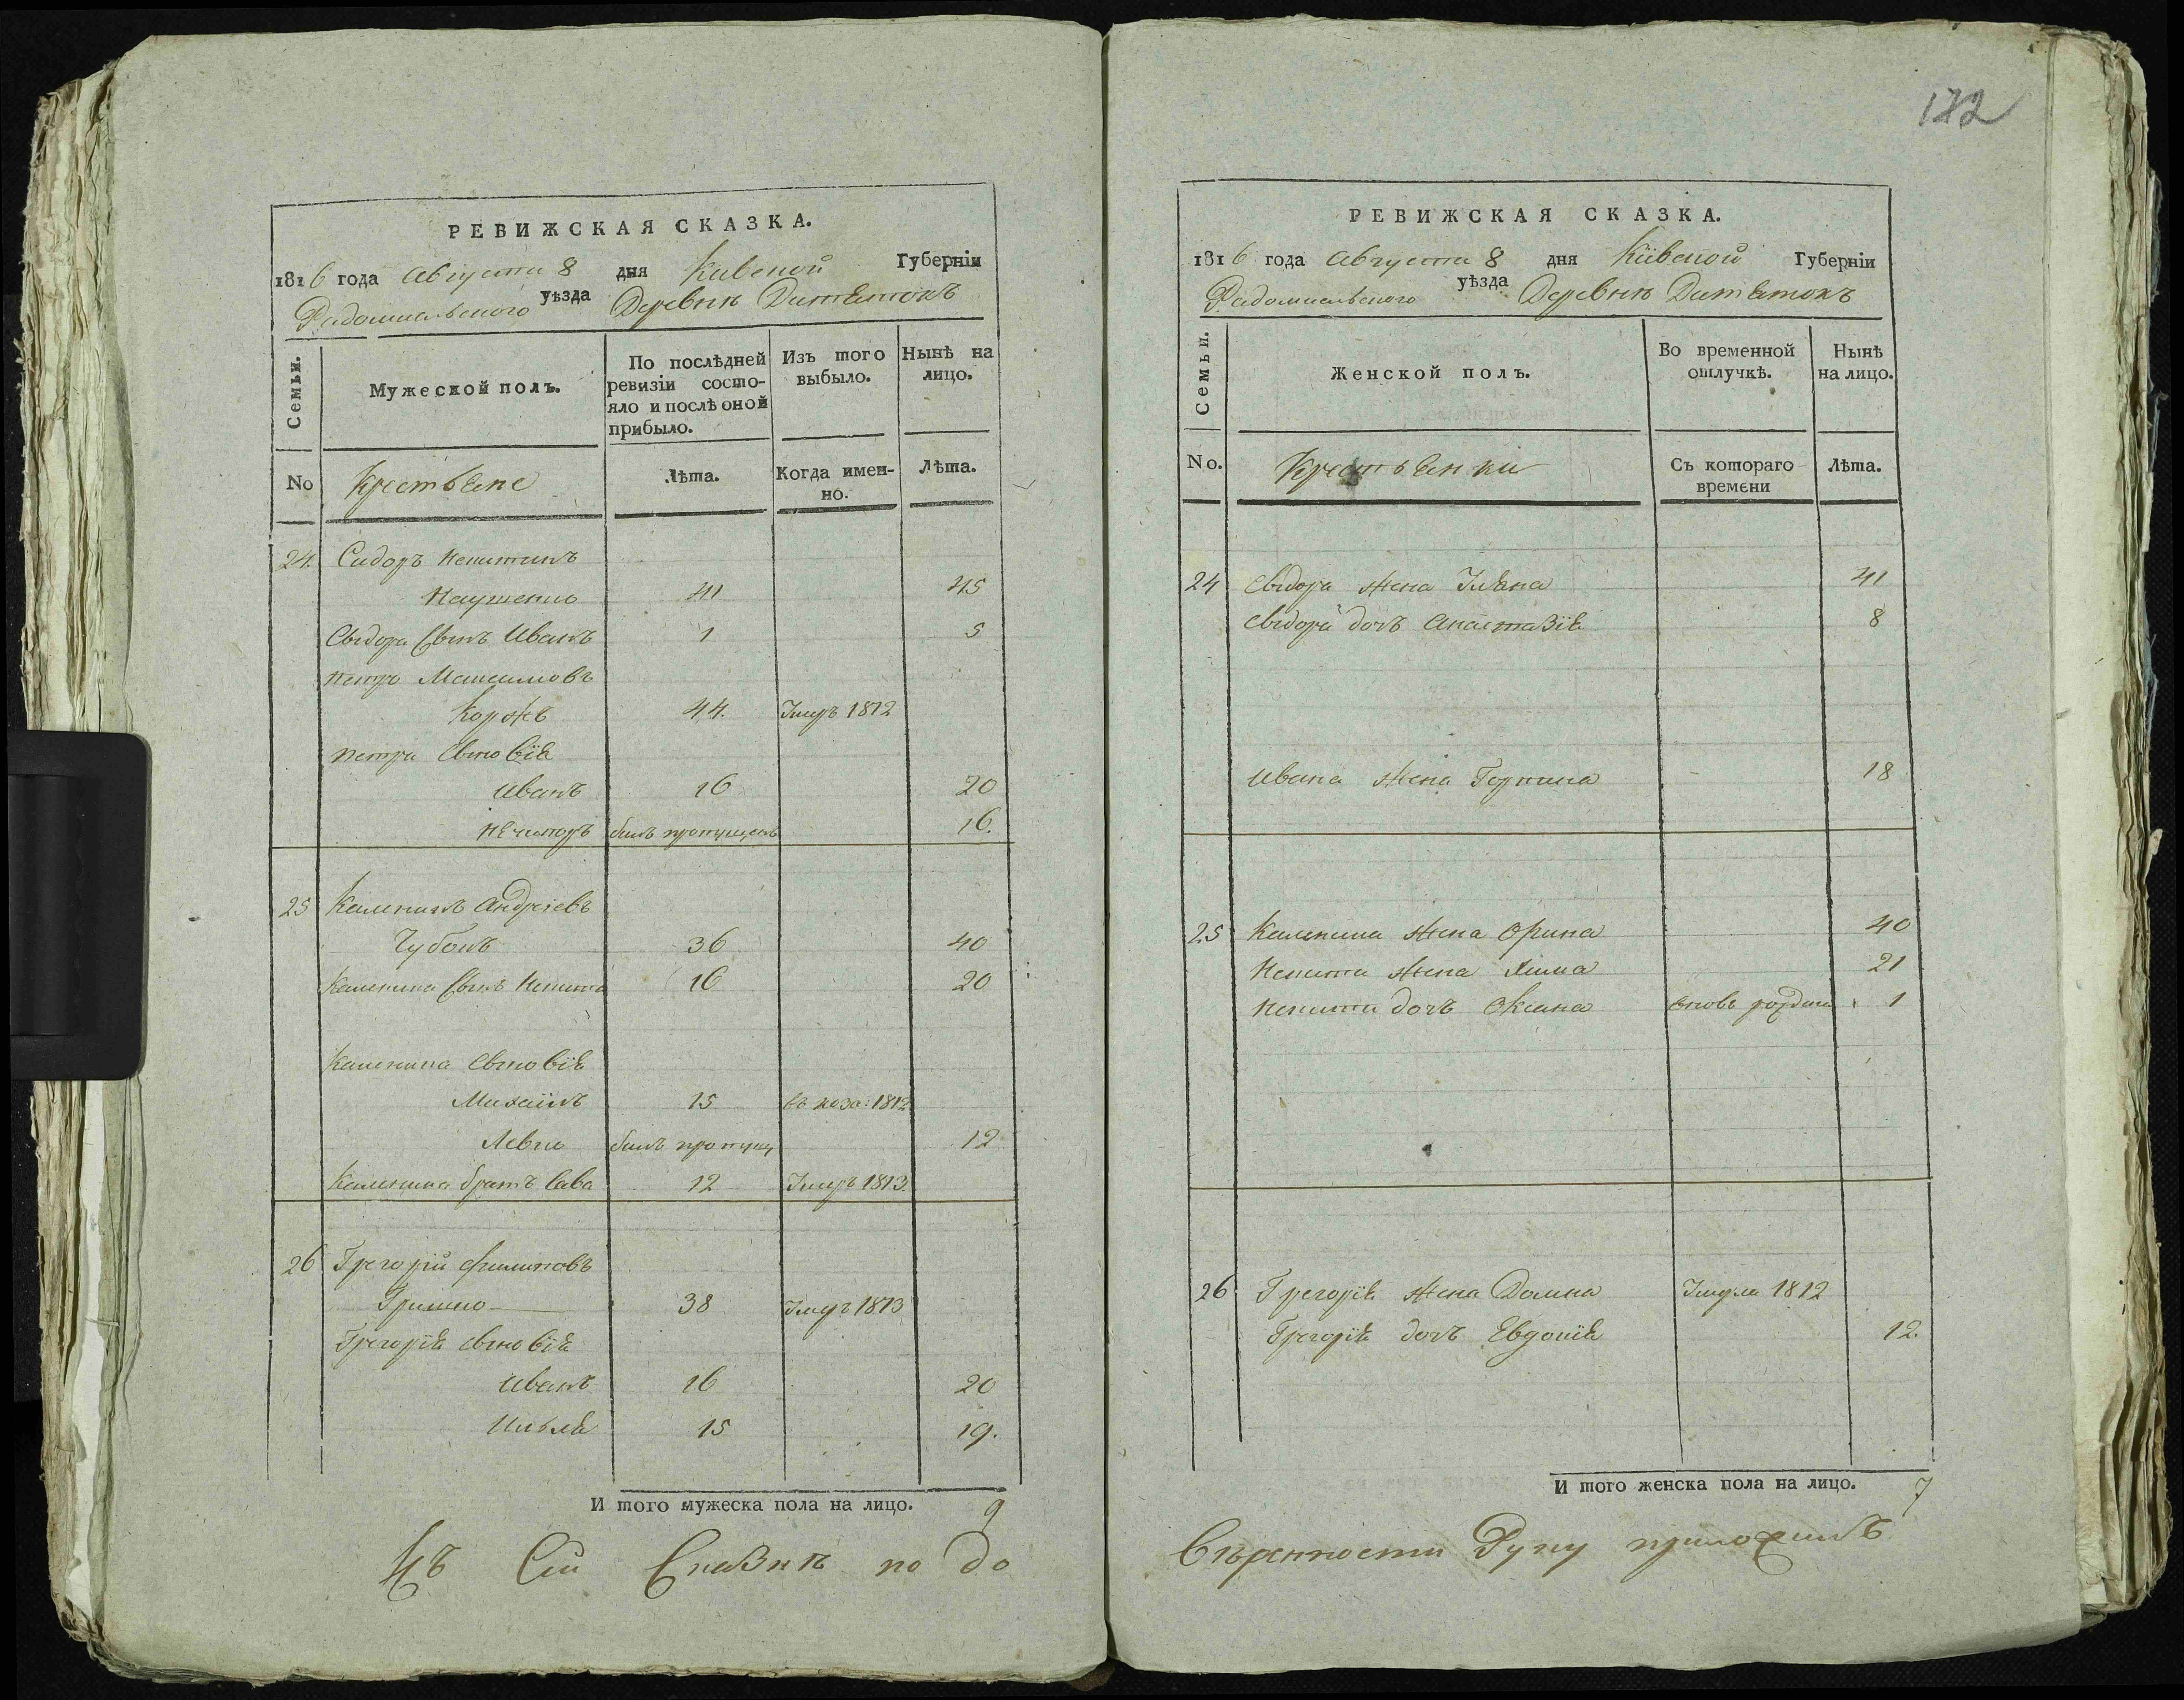 РЕВИЖСКАЯ СКАЗКА.
1816 года Августа 8 дня Киевской Губернїи
Радомысльского уѣзда Деревнѣ Дитятокъ
Семьи.
Мужеской полъ.
По послѣдней ревизїи состояло и послѣ оной прибыло.
Изъ того выбыло.
Нынѣ на лицо.
No
Крестьяне
Лѣта.
Когда именно.
Лѣта.
24. Сидоръ Никитинъ
41 45
Сидора сынъ Иванъ 1 5
Петръ Максимовъ
Коржъ 44. Умръ 1812
Петра сыновїя
Иванъ 16 20
Нечипоръ былъ пропущенъ 16.
25 Каленикъ Андреевъ
Чубокъ 36 40
Каленика сынъ Никита 16 20
Каленика сыновїя
Михаилъ 15 въ коза: 1812
Левко былъ пропущ 12
Каленика братъ Сава 12 Умръ 1813.
26 Грегорїй Филиповъ
Гришко 38 Умръ 1813
Грегорїя сыновїя
Иванъ 16 20
Илья 15 19.
И того мужеска пола на лицо. 9
Къ Сiй Сказкѣ по до
172
РЕВИЖСКАЯ СКАЗКА.
1816 года Августа 8 дня Кїевской Губернїи
Радомысльского уѣзда Деревнѣ Дитятокъ
Семьи.
Женской полъ.
Во временной отлучкѣ.
Нынѣ на лицо.
No.
Крестьянки
Съ котораго времени
Лѣта.
24 Сидора жена Уляна 41
Сидора дочъ Анастазїя 8
Ивана жена Горпина 18
25 Каленика жена Орина 40
Никити жена 21
Никити дочъ Оксана вновь рождена 1
26 Грегорїя жена Домна Умрла 1812
Грегорїя дочъ Евдокїя 12.
И того женска пола на лицо. 7
Вѣренности Руку приложилъ